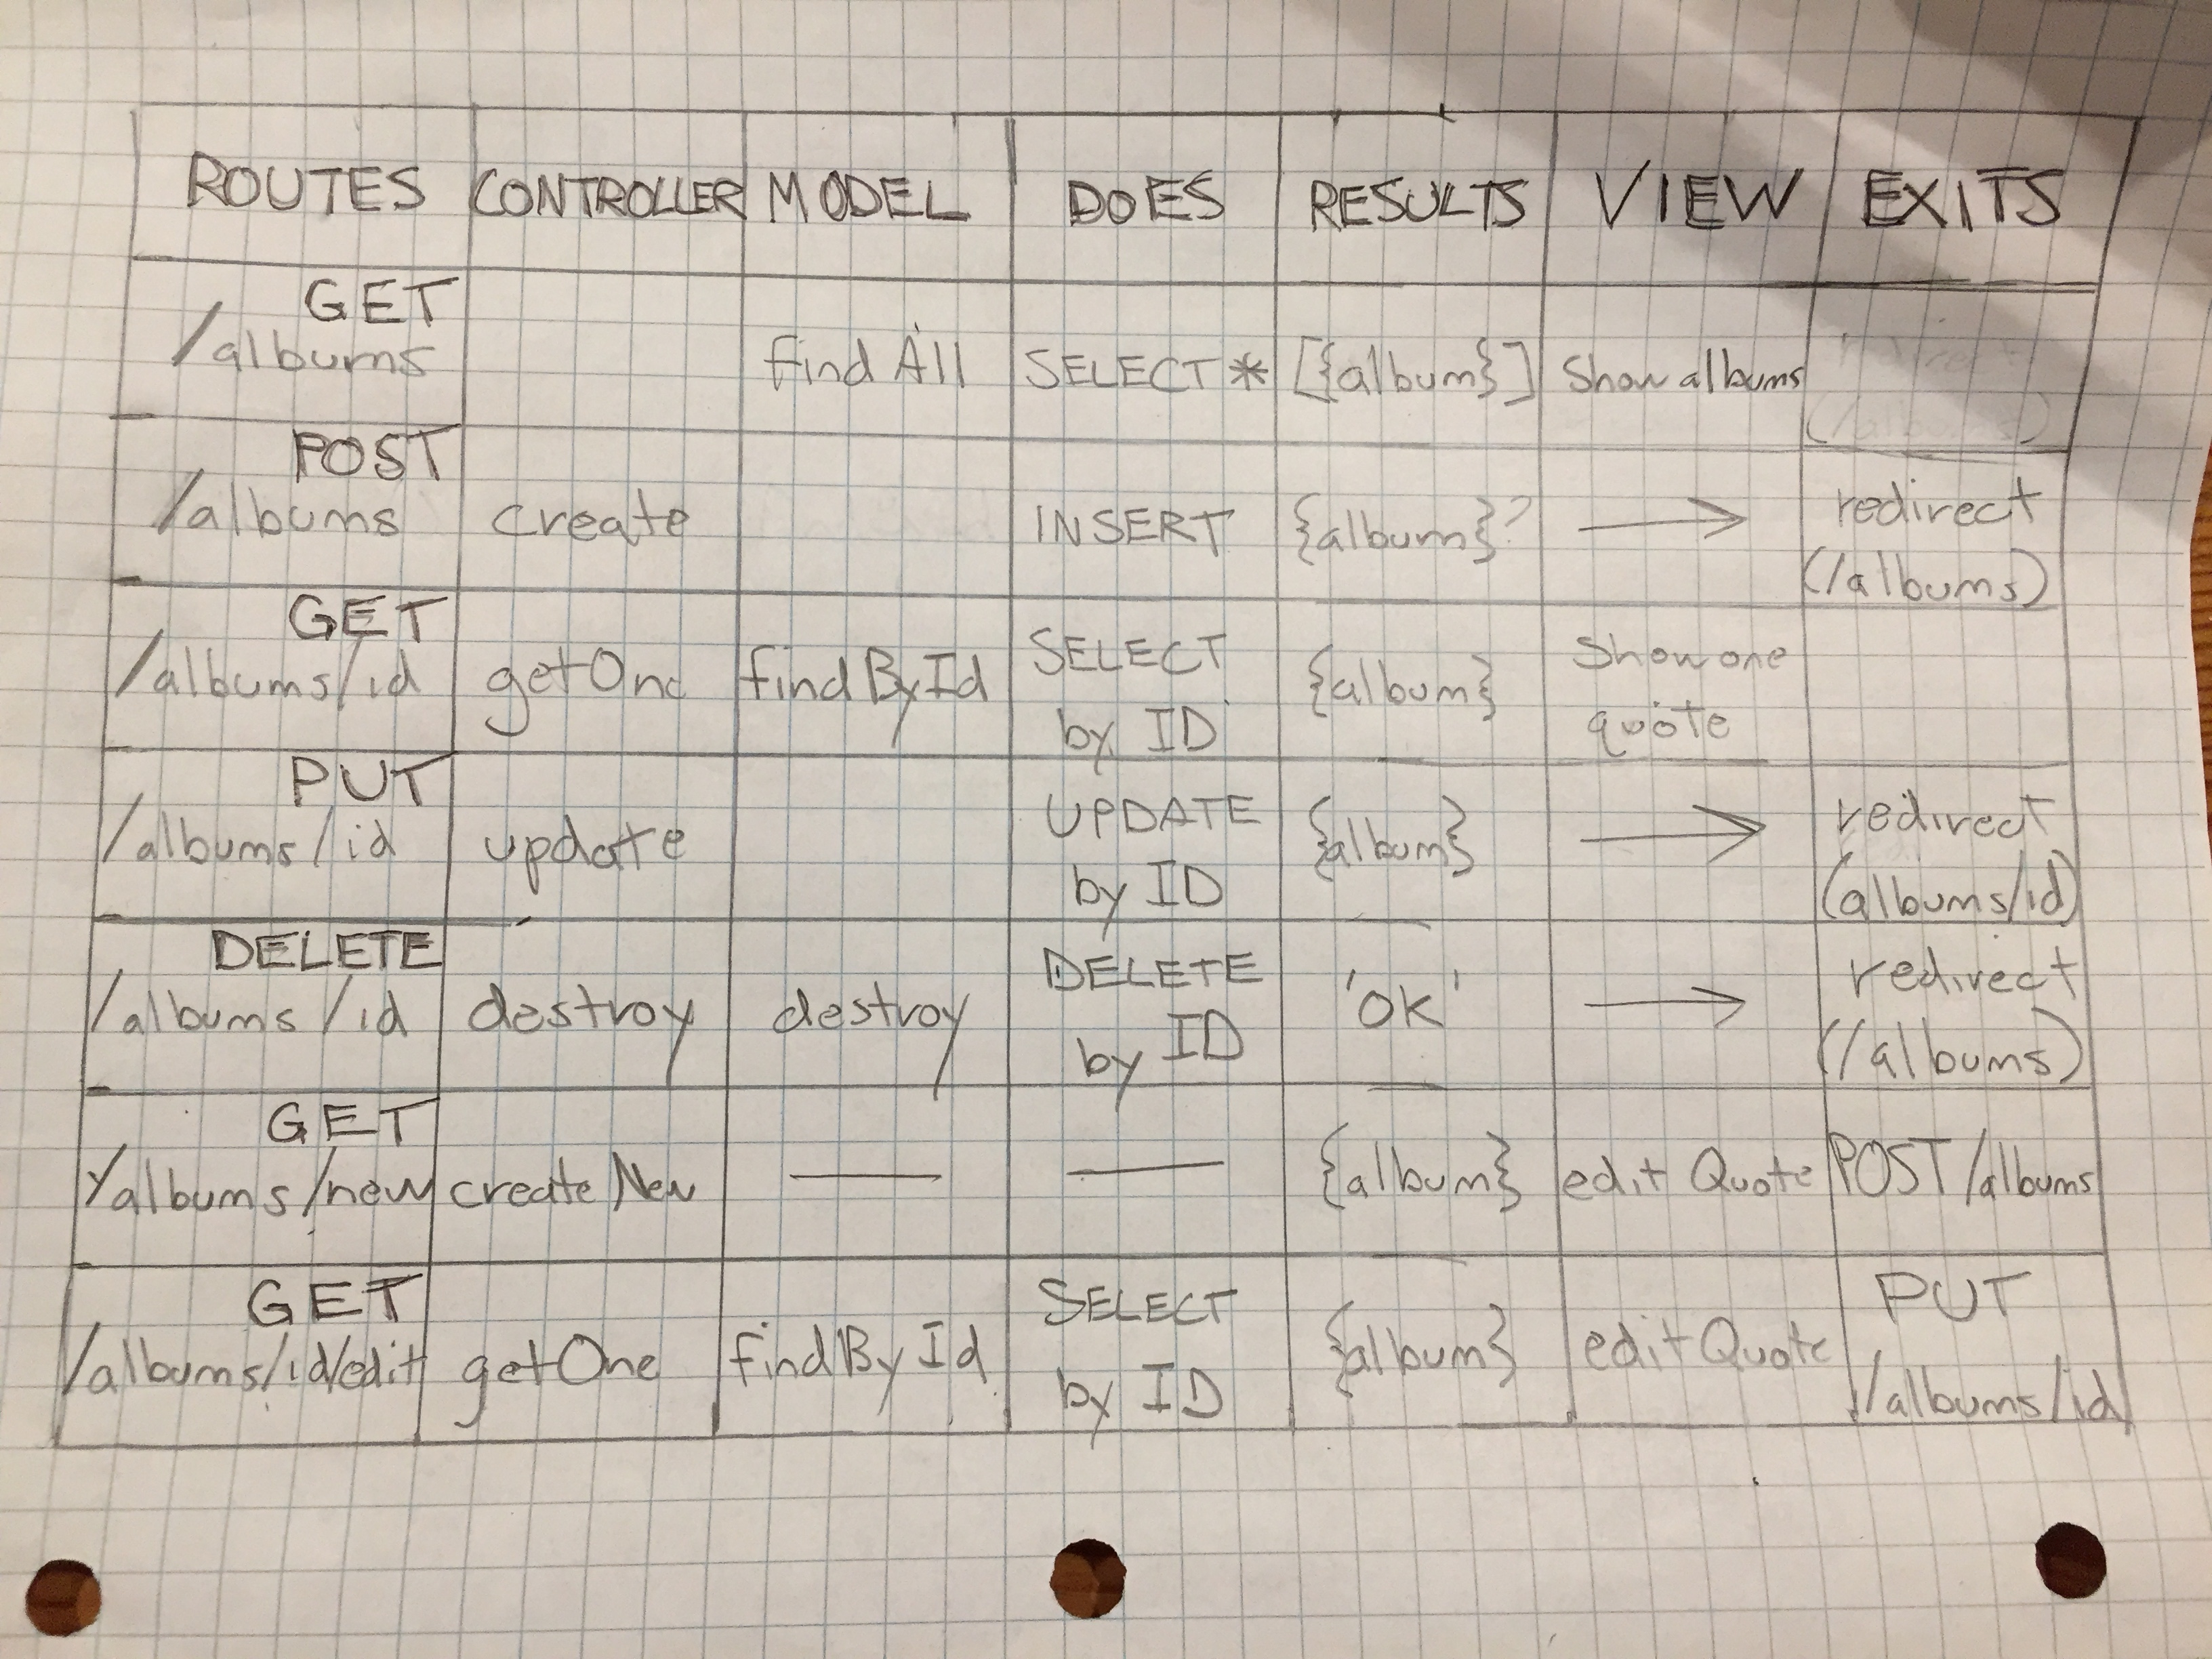 ROUTES CONTROLLER MODEL DOES RESULTS VIEW EXITS
GET
/albums findAll SELECT * [{album}] Show albums
(/albums)
POST
/albums create INSERT {album}? → redirect
(/albums)
GET
/albums/id getOne findById SELECT
by ID {album} Show one
quote
PUT
/albums/id update UPDATE
by ID {album} → redirect
(albums/id)
DELETE
/albums/id destroy destroy DELETE
by ID 'OK' → redirect
(/albums)
GET
/albums/new createNew — — {album} editQuote POST /albums
GET
/albums/id/edit getOne findById SELECT
by ID {album} editQuote PUT
/albums/id